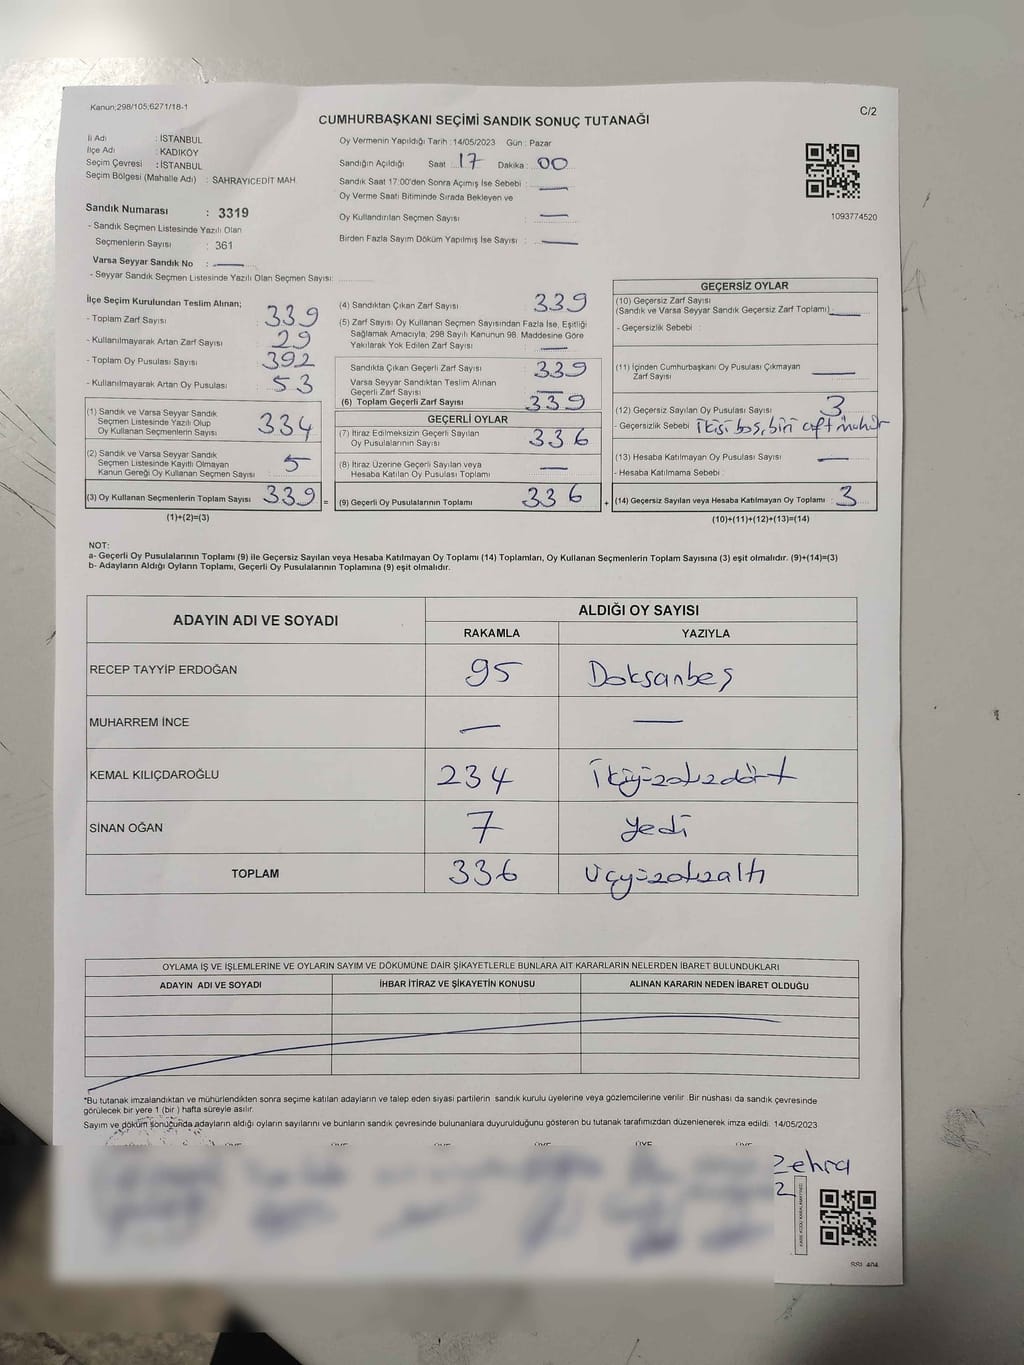 Kanun;298/105;6271/18-1
C/2
CUMHURBAŞKANI SEÇİMİ SANDIK SONUÇ TUTANAĞI
İl Adı : İSTANBUL
İlçe Adı : KADIKÖY
Seçim Çevresi : İSTANBUL
Seçim Bölgesi (Mahalle Adı) : SAHRAYICEDİT MAH.
Sandık Numarası : 3319
- Sandık Seçmen Listesinde Yazılı Olan
Seçmenlerin Sayısı : 361
Varsa Seyyar Sandık No : —
- Seyyar Sandık Seçmen Listesinde Yazılı Olan Seçmen Sayısı: ................
Oy Vermenin Yapıldığı Tarih :14/05/2023 Gün : Pazar
Sandığın Açıldığı Saat : 17 Dakika : 00
Sandık Saat 17:00'den Sonra Açımış İse Sebebi : —
Oy Verme Saati Bitiminde Sırada Bekleyen ve
Oy Kullandırılan Seçmen Sayısı : —
Birden Fazla Sayım Döküm Yapılmış İse Sayısı : —
1093774520
İlçe Seçim Kurulundan Teslim Alınan;
- Toplam Zarf Sayısı : 339
- Kullanılmayarak Artan Zarf Sayısı : 29
- Toplam Oy Pusulası Sayısı : 392
- Kullanılmayarak Artan Oy Pusulası : 53
(1) Sandık ve Varsa Seyyar Sandık
Seçmen Listesinde Yazılı Olup
Oy Kullanan Seçmenlerin Sayısı : 334
(2) Sandık ve Varsa Seyyar Sandık
Seçmen Listesinde Kayıtlı Olmayan
Kanun Gereği Oy Kullanan Seçmen Sayısı : 5
(3) Oy Kullanan Seçmenlerin Toplam Sayısı : 339 =
(1)+(2)=(3)
(4) Sandıktan Çıkan Zarf Sayısı : 339
(5) Zarf Sayısı Oy Kullanan Seçmen Sayısından Fazla İse, Eşitliği
Sağlamak Amacıyla, 298 Sayılı Kanunun 98. Maddesine Göre
Yakılarak Yok Edilen Zarf Sayısı : —
Sandıkta Çıkan Geçerli Zarf Sayısı : 339
Varsa Seyyar Sandıktan Teslim Alınan
Geçerli Zarf Sayısı : —
(6) Toplam Geçerli Zarf Sayısı : 339
GEÇERLİ OYLAR
(7) İtiraz Edilmeksizin Geçerli Sayılan
Oy Pusulalarının Sayısı : 336
(8) İtiraz Üzerine Geçerli Sayılan veya
Hesaba Katılan Oy Pusulası Sayısı : —
(9) Geçerli Oy Pusulalarının Toplamı : 336 +
GEÇERSİZ OYLAR
(10) Geçersiz Zarf Sayısı
(Sandık ve Varsa Seyyar Sandık Geçersiz Zarf Toplamı) —
- Geçersizlik Sebebi :
(11) İçinden Cumhurbaşkanı Oy Pusulası Çıkmayan
Zarf Sayısı : —
(12) Geçersiz Sayılan Oy Pusulası Sayısı : 3
- Geçersizlik Sebebi : ikisi boş, biri çift mühür
(13) Hesaba Katılmayan Oy Pusulası Sayısı : —
- Hesaba Katılmama Sebebi :
(14) Geçersiz Sayılan veya Hesaba Katılmayan Oy Toplamı : 3
(10)+(11)+(12)+(13)=(14)
NOT:
a- Geçerli Oy Pusulalarının Toplamı (9) ile Geçersiz Sayılan veya Hesaba Katılmayan Oy Toplamı (14) Toplamları, Oy Kullanan Seçmenlerin Toplam Sayısına (3) eşit olmalıdır. (9)+(14)=(3)
b- Adayların Aldığı Oyların Toplamı, Geçerli Oy Pusulalarının Toplamına (9) eşit olmalıdır.
ADAYIN ADI VE SOYADI ALDIĞI OY SAYISI
RAKAMLA YAZIYLA
RECEP TAYYİP ERDOĞAN 95 Doksanbeş
MUHARREM İNCE — —
KEMAL KILIÇDAROĞLU 234 ikiyüzotuzdört
SİNAN OĞAN 7 yedi
TOPLAM 336 üçyüzotuzaltı
OYLAMA İŞ VE İŞLEMLERİNE VE OYLARIN SAYIM VE DÖKÜMÜNE DAİR ŞİKAYETLERLE BUNLARA AİT KARARLARIN NELERDEN İBARET BULUNDUKLARI
ADAYIN ADI VE SOYADI İHBAR İTİRAZ VE ŞİKAYETİN KONUSU ALINAN KARARIN NEDEN İBARET OLDUĞU
*Bu tutanak imzalandıktan ve mühürlendikten sonra seçime katılan adayların ve talep eden siyasi partilerin sandık kurulu üyelerine veya gözlemcilerine verilir. Bir nüshası da sandık çevresinde
görülecek bir yere 1 (bir ) hafta süreyle asılır.
Sayım ve döküm sonuçunda adayların aldığı oyların sayılarını ve bunların sandık çevresinde bulunanlara duyurulduğunu gösteren bu tutanak tarafımızdan düzenlenerek imza edildi. 14/05/2023
ÜYE ÜYE ÜYE ÜYE
Zehra
2